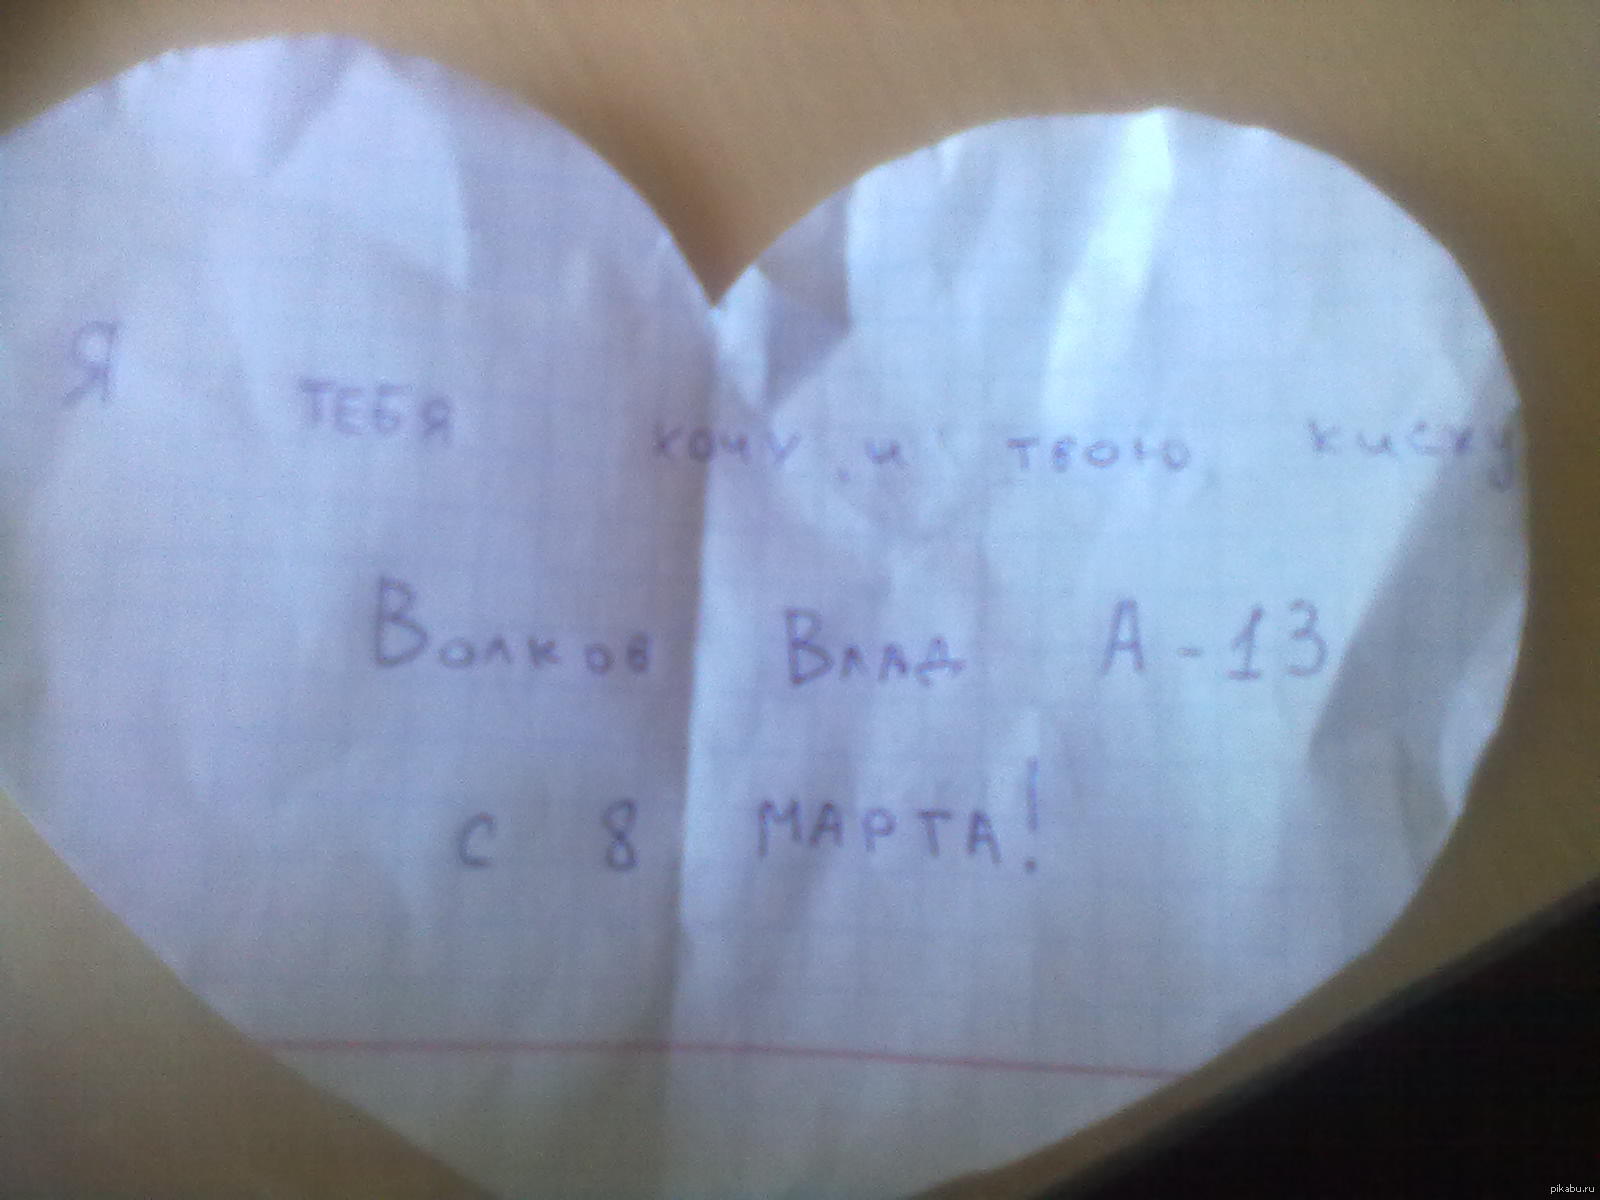 Я тебя хочу и твою киску
Волков Влад А-13
с 8 МАРТА!
pikabu.ru